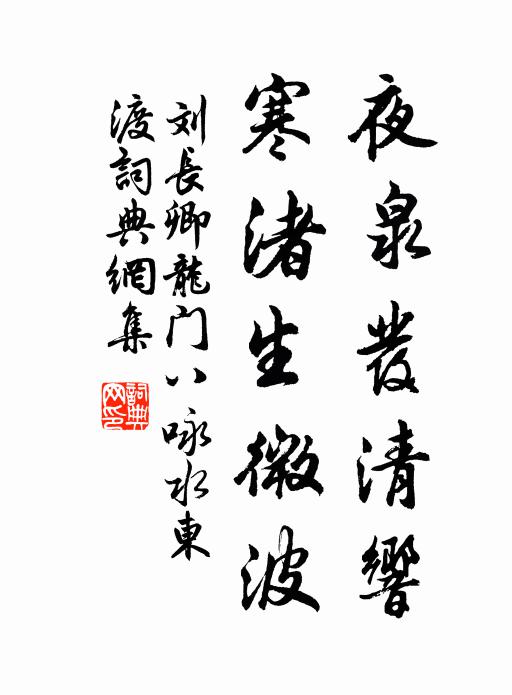 夜泉發清響
寒渚生微波
刘長卿龍门八咏水東
渡詞典網集
詞典網印